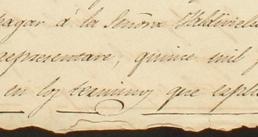 pagar á la Señora Valdivielso
representare, quince mil p
en los terminos que esplic